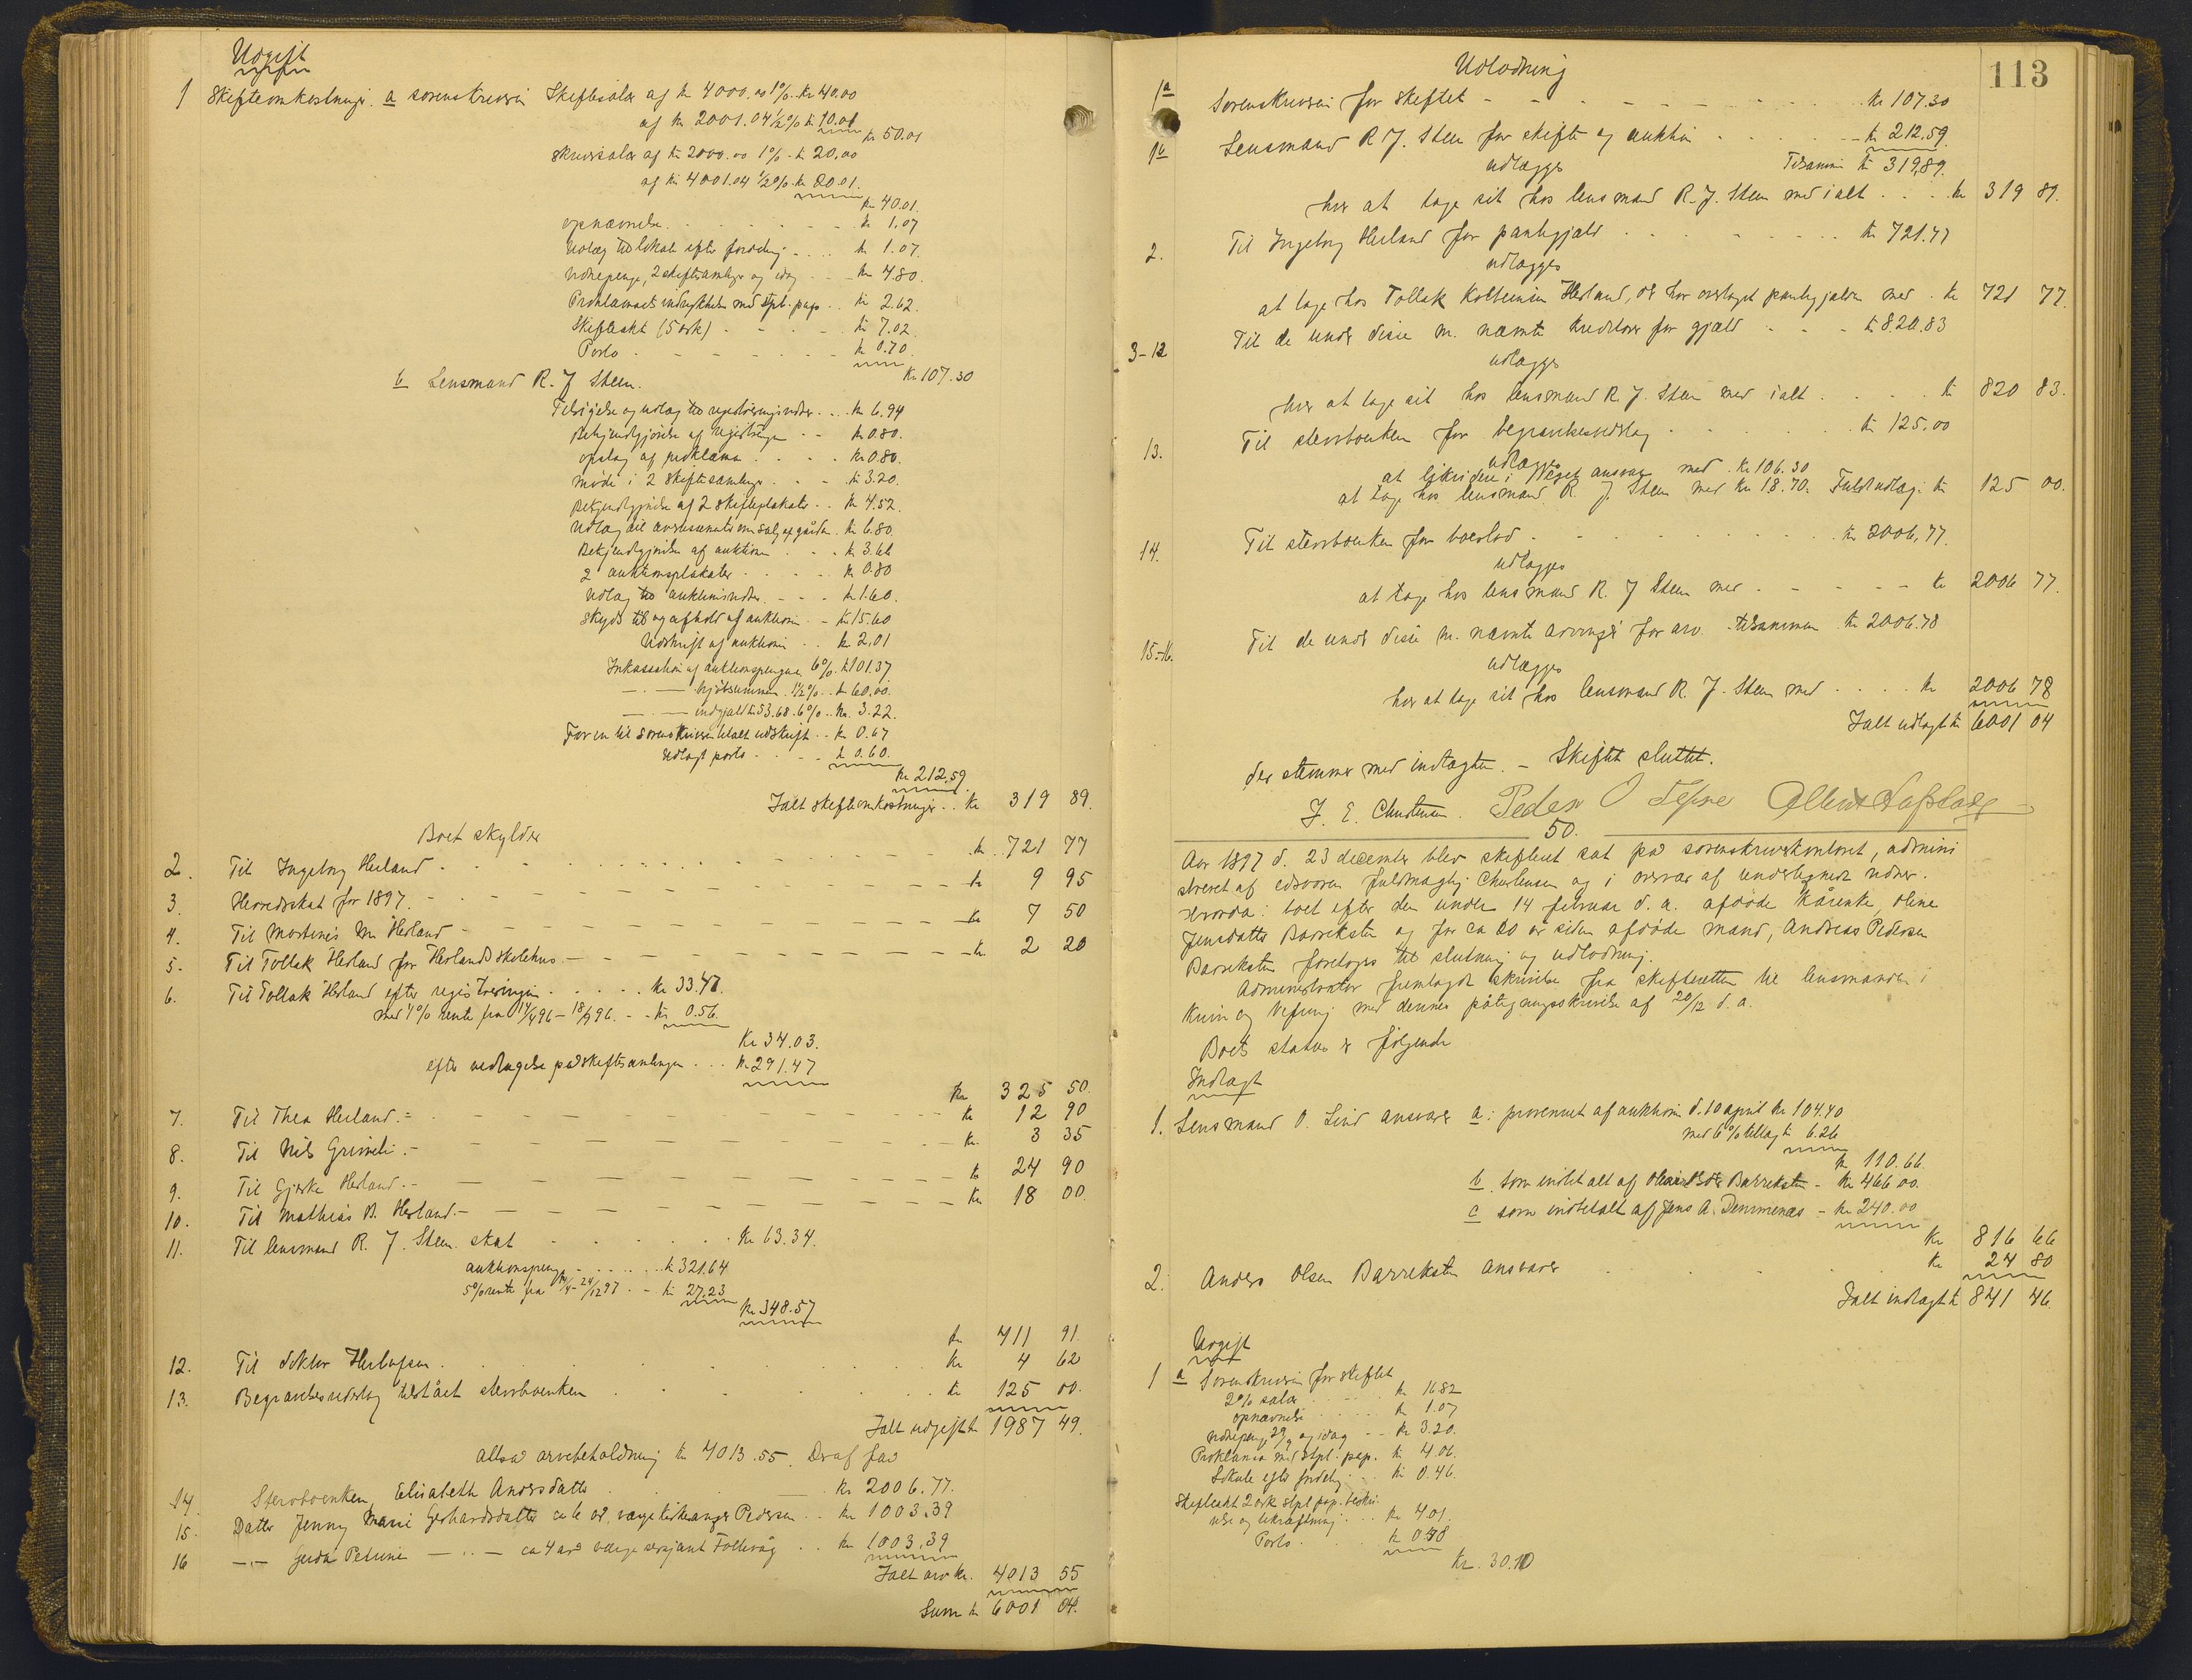 Udgift
1 Skifteomkostninger. a sorenskriveren Skiftesalær af kr 4000.00 1% - kr 40.00
af kr 2001.04 1/2% kr 10.01
kr 50.01
Skriversalær af kr 2000.00 1% - kr 20.00
af kr 4001.04 1/2% kr 20.01.
kr 40.01.
opnævnelse . . . kr 1.07
Udlæg til lokale efter fordeling . . . kr 1.07.
Vidnepenge, 2 skiftesamlinger og idag - - kr 4.80.
Proklamaets indrykkelse med stpl. papir . . kr 2.62.
Skifteakt (5 ark) - - - kr 7.02.
Porto - - - kr 0.70.
kr 107.30
b Lensmand R. J. Steen.
Tilsigelse og udlæg til registreringsvidner . . kr 6.94
Bekjendtgjørelse af registreringen - - kr 0.80.
opslag af proklama . . . kr 0.80.
møde i 2 skiftesamlinger . . - kr 3.20.
Bekjendtgjørelse af 2 skifteplakater . . kr 4.52.
Udlæg til om salg af gården . kr 6.80.
Bekjendtgjørelse af auktionen . . . kr 3.66
2 auktionsplakater . . . kr 0.80
Udlæg til auktionsvidner . - - kr 1.60.
Skyds til og afhold af auktionen - kr 15.60
Udskrift af auktionen . . kr 2.01
Inkassation af auktionspengene 6% . kr 101.37
- . - kjøbesummen . 1 1/2% . . kr 60.00.
- . - indgjæld kr 53.68 . 6% . . kr. 3.22.
For en til sorenskriveren betalt udskrift . . kr 0.67
Udlagt porto . . - kr 0.60.
kr 212.59
Ialt skifteomkostninger . . kr 319 89.
Boet skylder
2. Til Ingeborg Herland . - - - kr. 721 77
3. Herredsskat for 1897. - - - kr 9 95
4. Til Martines M. Herland - - - kr 7 50
5. Til Tollak Herland for Herlands skolehus - - - kr. 2 20
6. Til Tollak Herland efter registreringen . . . kr 33.47.
med 4% rente fra 14/4 96 - 18/9 96. - - kr 0.56.
Kr 34.03.
efter vedtagelse på skiftesamlingen . . . kr. 291.47
Kr 325 50.
7. Til Thea Herland. - - - kr 12 90
8. Til Nils Grimeli. - - - kr. 3 35
9. Til Gjerke Herland. - - - kr 24 90
10. Til Mathias B. Herland. - - - kr 18 00.
11. Til lensmand R. J. Steen. skat . . . kr 63.34.
auktionspenge . . . kr 321.64
5% rente fra - 24/12 97 . - kr 27.23
kr 348.57
kr 411 91.
12. Til doktor . . . kr 4 62
13. Begravelsesudlæg tilstået stervboenken . . . kr 125 00.
Ialt udgift kr 1987 49.
altså arvebeholdning kr 4013.55. Deraf får
14. Stervboenken, Elisabeth Andersdatter . . . kr 2006.77.
15. Datter Jenny Marie Gerhardsdatter ca 6 år, værge kirkesanger Pedersen . . kr 1003.39
16 -..- Gerda Petrine -..- ca 4 år værge sersjant Follevåg . . kr 1003.39
Ialt arv kr. 4013 55
Sum kr 6001 04.
113
Udlodning
1a Sorenskriveren for skiftet - - - kr 107.30
1b Lensmand R. J. Steen for skifte og auktion . . . kr 212.59.
udlægges Tilsammen kr 319.89.
hver at tage sit hos lensmand R. J. Steen med ialt . . . kr 319 89.
2. Til Ingeborg Herland for pantegjæld . . . kr 721.77
udlægges
at tage hos Tollak Kolbeinsen Herland, der har overtaget pantegjælden med . kr 721 77.
3-12 Til de under disse nr. nævnte kreditorer for gjæld - - - kr 820.83
udlægges
hver at tage sit hos lensmand R. J. Steen med ialt . . . kr 820 83.
13. Til stervboenken for begravelsesudlæg . . . kr 125.00
udlægges
at likvidere i eget ansvar med . kr. 106.30
at tage hos lensmand R. J. Steen med kr 18.70. Fuldt udlæg: kr 125 00.
14. Til stervboenken for boeslod . . . kr 2006.77.
udlægges
at tage hos lensmand R. J. Steen med . - - - kr 2006 77.
15-16. Til de under disse nr. nævnte arvinger for arv - tilsammen . kr 2006.78
udlægges
hver at tage sit hos lensmand R. J. Steen med . . . . kr 2006 78
Ialt udlagt kr 6001 04
der stemmer med indtægten. - Skiftet sluttet.
J. E. Christensen. Peder O
50.
Aar 1897 d. 23 december blev skifteret sat på sorenskriverkontoret, admini
streret af edsvoren fuldmægtig Christensen og i overvær af undertegnede vidner.
Hvorda: boet efter den under 14 februar d. a. afdøde kårenke, Oline
Jensdatter Barreksten og for ca 20 år siden afdøde mand, Andreas Pedersen
Barreksten foretages til slutning og udlodning.
Administrator fremlagde skrivelse fra skifteretten til lensmanden i
Kinn og Vefring med dennes påtegningsskrivelse af 20/12 d. a.
Boets status er følgende
Indtægt
1. Lensmand O. Lind ansvarer a: provenuet af auktion d. 10 april kr 104.40
med 6% tillæg kr 6.26
kr 110.66.
b. som indbetalt af Barreksten - kr 466 00.
c som indbetalt af Jens A. Demmenæs - kr 240.00
Kr 816 66
2. Anders Olsen Barreksten ansvarer . . . Kr 24 80
Ialt indtægt kr 841 46.
Udgift
1 a Sorenskriveren for skiftet
2% salær . . . kr 16.82
opnævnelse . . . kr 1.07
Vidnepenge 29/9 og idag - - kr 3.20.
Proklama med stpl. pap. kr 4.06.
Lokale efter fordeling . . . kr 0.46.
Skifteakt 2 ark stpl. pap. beskri-
velse og bekræftning . . . kr 4.01.
Porto . . . kr 0.48
Kr. 30.10